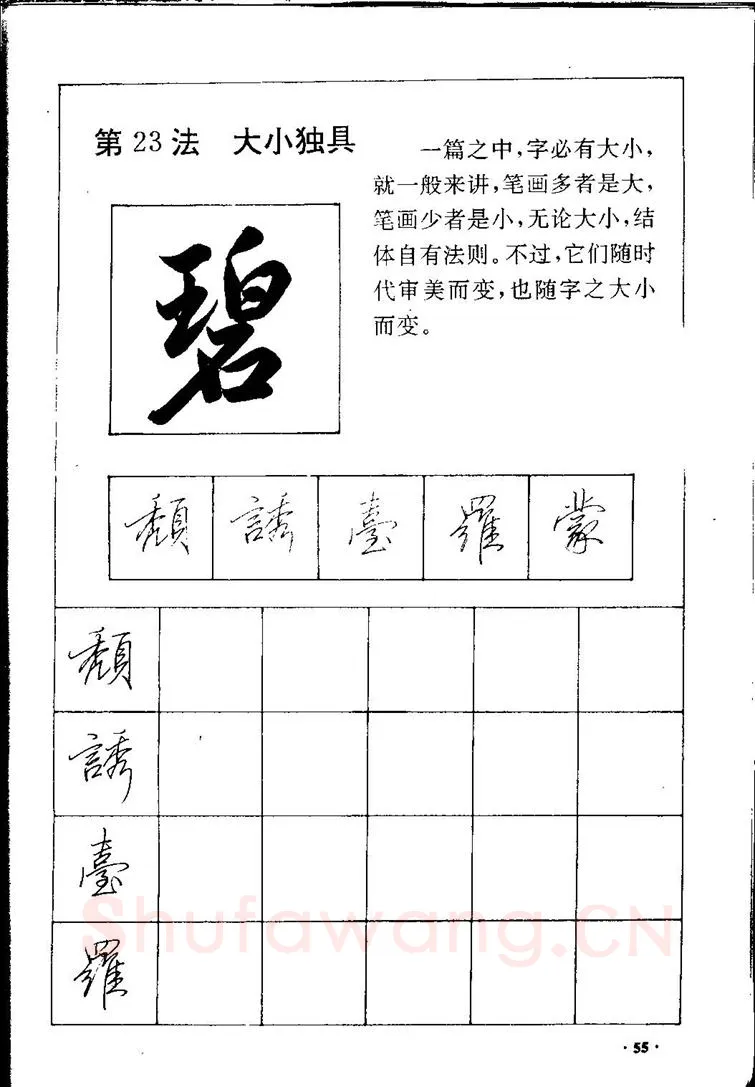 第23法 大小独具
一篇之中,字必有大小,
就一般来讲,笔画多者是大,
笔画少者是小,无论大小,结
体自有法则。不过,它们随时
代审美而变,也随字之大小
而变。
碧
頹 誘 臺 羅 蒙
頹
誘
臺
羅
Shufawang.CN
·55·